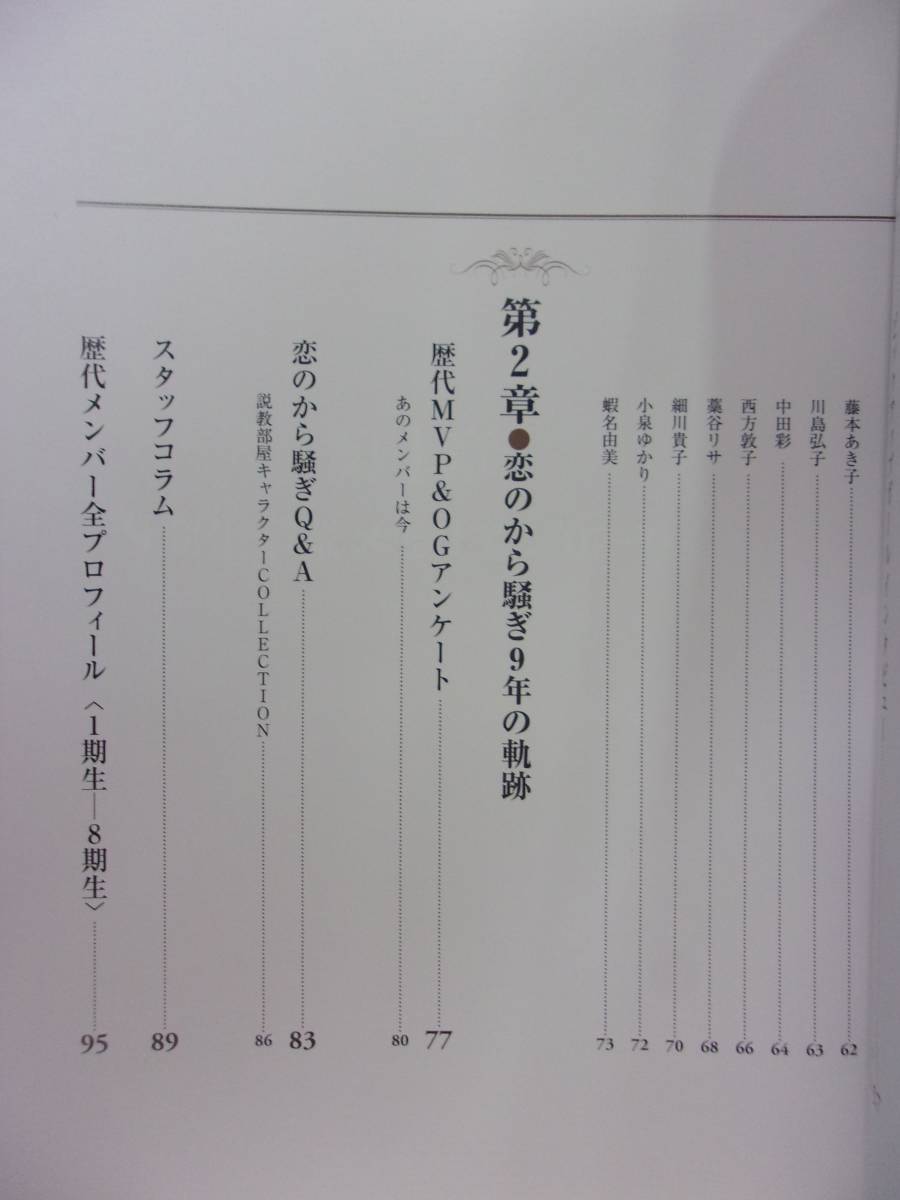 藤本あき子 62
川島弘子 63
中田彩 64
西方敦子 66
藁谷リサ 68
細川貴子 70
小泉ゆかり 72
蝦名由美 73
第2章●恋のから騒ぎ9年の軌跡
歴代MVP&OGアンケート 77
あのメンバーは今 80
恋のから騒ぎQ&A 83
説教部屋キャラクターCOLLECTION 86
スタッフコラム 89
歴代メンバー全プロフィール〈1期生―8期生〉 95